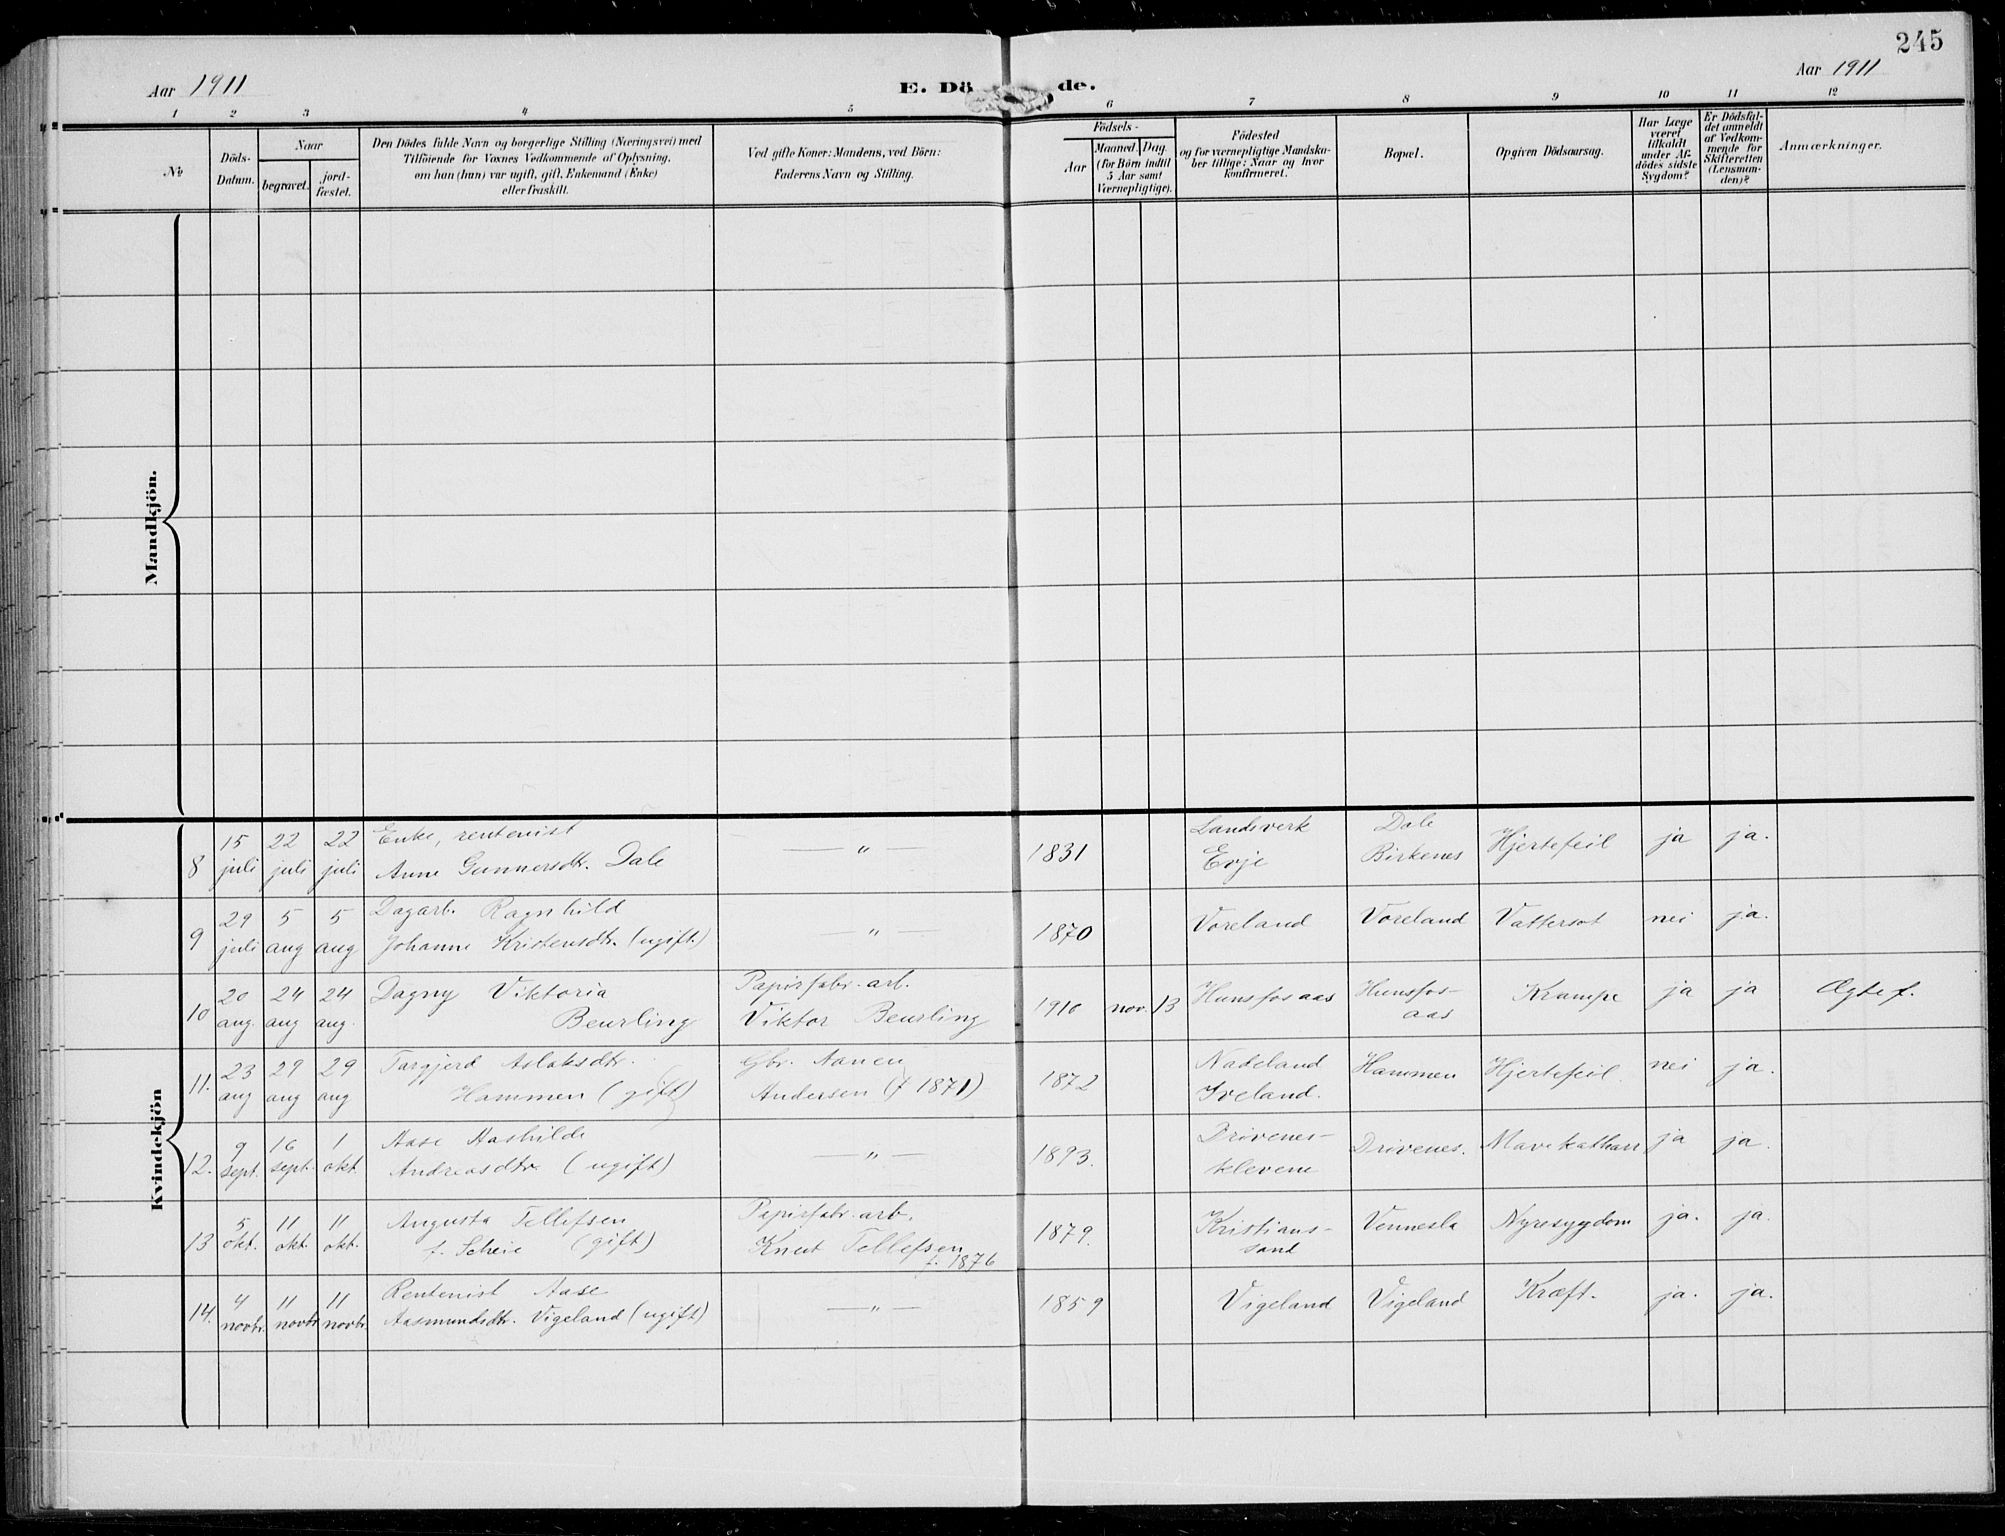 245
Aar 1911
E. Dö de.
Aar 1911
1 2 3 4 5 6 7 8 9 10 11 12
No
Döds-
Datum.
Naar
begravet.
jord-
fæstet.
Den Dödes fulde Navn og borgerlige Stilling (Næringsvei) med
Tilföiende for Voxnes Vedkommende af Oplysning,
om han (hun) var ugift, gift, Enkemand (Enke)
eller fraskilt.
Ved gifte Koner: Mandens, ved Börn:
Faderens Navn og Stilling.
Födsels-
Aar
Maaned. Dag.
(for Börn indtil
5 Aar samt
Værnepligtige).
Födested
og for værnepligtige Mandska-
ber tillige: Naar og hvor
konfirmeret.
Bopæl.
Opgiven Dödsaarsag.
Har Læge
været
tilkaldt
under Af-
dödes sidste
Sygdom?
Er Dödsfal-
det anmeldt
af Vedkom-
mende for
Skifteretten
(Lensman-
den)?
Anmærkninger.
Mandkjön.
Kvindekjön
8 15 juli 22 juli 22 juli Enke, rentenist
Anne Gunnersdtr. Dale — " — 1831 Landsverk
Evje Dale
Birkenes Hjertefeil ja ja.
9 29 juli 5 aug 5 aug Dagarb. Ragnhild
Johanne Kristensdtr. (ugift) — " — 1870 Voreland Voreland Vattersot nei ja.
10 20 aug. 24 aug 24 aug. Dagny Viktoria
Beurling Papirfabr. arb.
Viktor Beurling 1910 nov. 13 Hunsfosaas Hunsfos-
aas Krampe ja ja Ægte f.
11. 23 aug 29 aug 29 aug Targjerd Aslaksdtr.
Hammen (gift) Gbr. Aanen
Andersen (f 1871) 1872 Nadeland
Iveland. Hammen Hjertefeil. nei ja.
12. 9 sept. 16 sept. 1 okt. Aase Aashilde
Andreasdtr. (ugift) — " — 1893. Drivenes-
klevene Drivenes. Mavekatharr ja ja.
13 5 okt. 11 okt. 11 okt. Augusta Tellefsen
f. Scheie (gift) Papirfabr. arb.
Knut Tellefsen
f. 1876 1879. Kristians-
sand Vennesla Nyresygdom ja. ja.
14. 4 novbr. 11 novbr 11 novbr. Rentenist Aase
Aasmundsdtr. Vigeland (ugift) — " — 1859 Vigeland Vigeland Kræft. ja. ja.